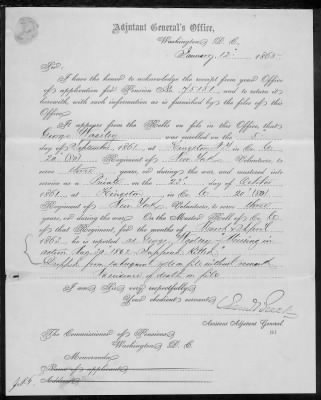 Adjutant General's Office,
Washington, D. C.
January 12th 1865
Sir:
I have the honor to acknowledge the receipt from your Office
of application for Pension No. 75181, and to return it
herewith, with such information as is furnished by the files of this
Office.
It appears from the Rolls on file in this Office, that
George Wasley was enrolled on the
day of September, 1861, at Kingston N.Y. in Co.
20 (80) Regiment of New York Volunteers, to
serve three years, or during the war, and mustered into
service as a Private on the 25 day of October
1861, at Kingston in Co. 20 (80)
Regiment of New York Volunteers, to serve three
years, or during the war. On the Muster Roll of Co.
of that Regiment, for the months of
1862, he is reported Missing in
action Aug 30 1862 Supposed Killed
Dropped from
evidence of death on file
I am, Sir, very respectfully,
Your obedient servant,
Assistant Adjutant General
The Commissioner of Pensions,
Washington, D. C.
Memoranda:
Name of applicant,
Address,